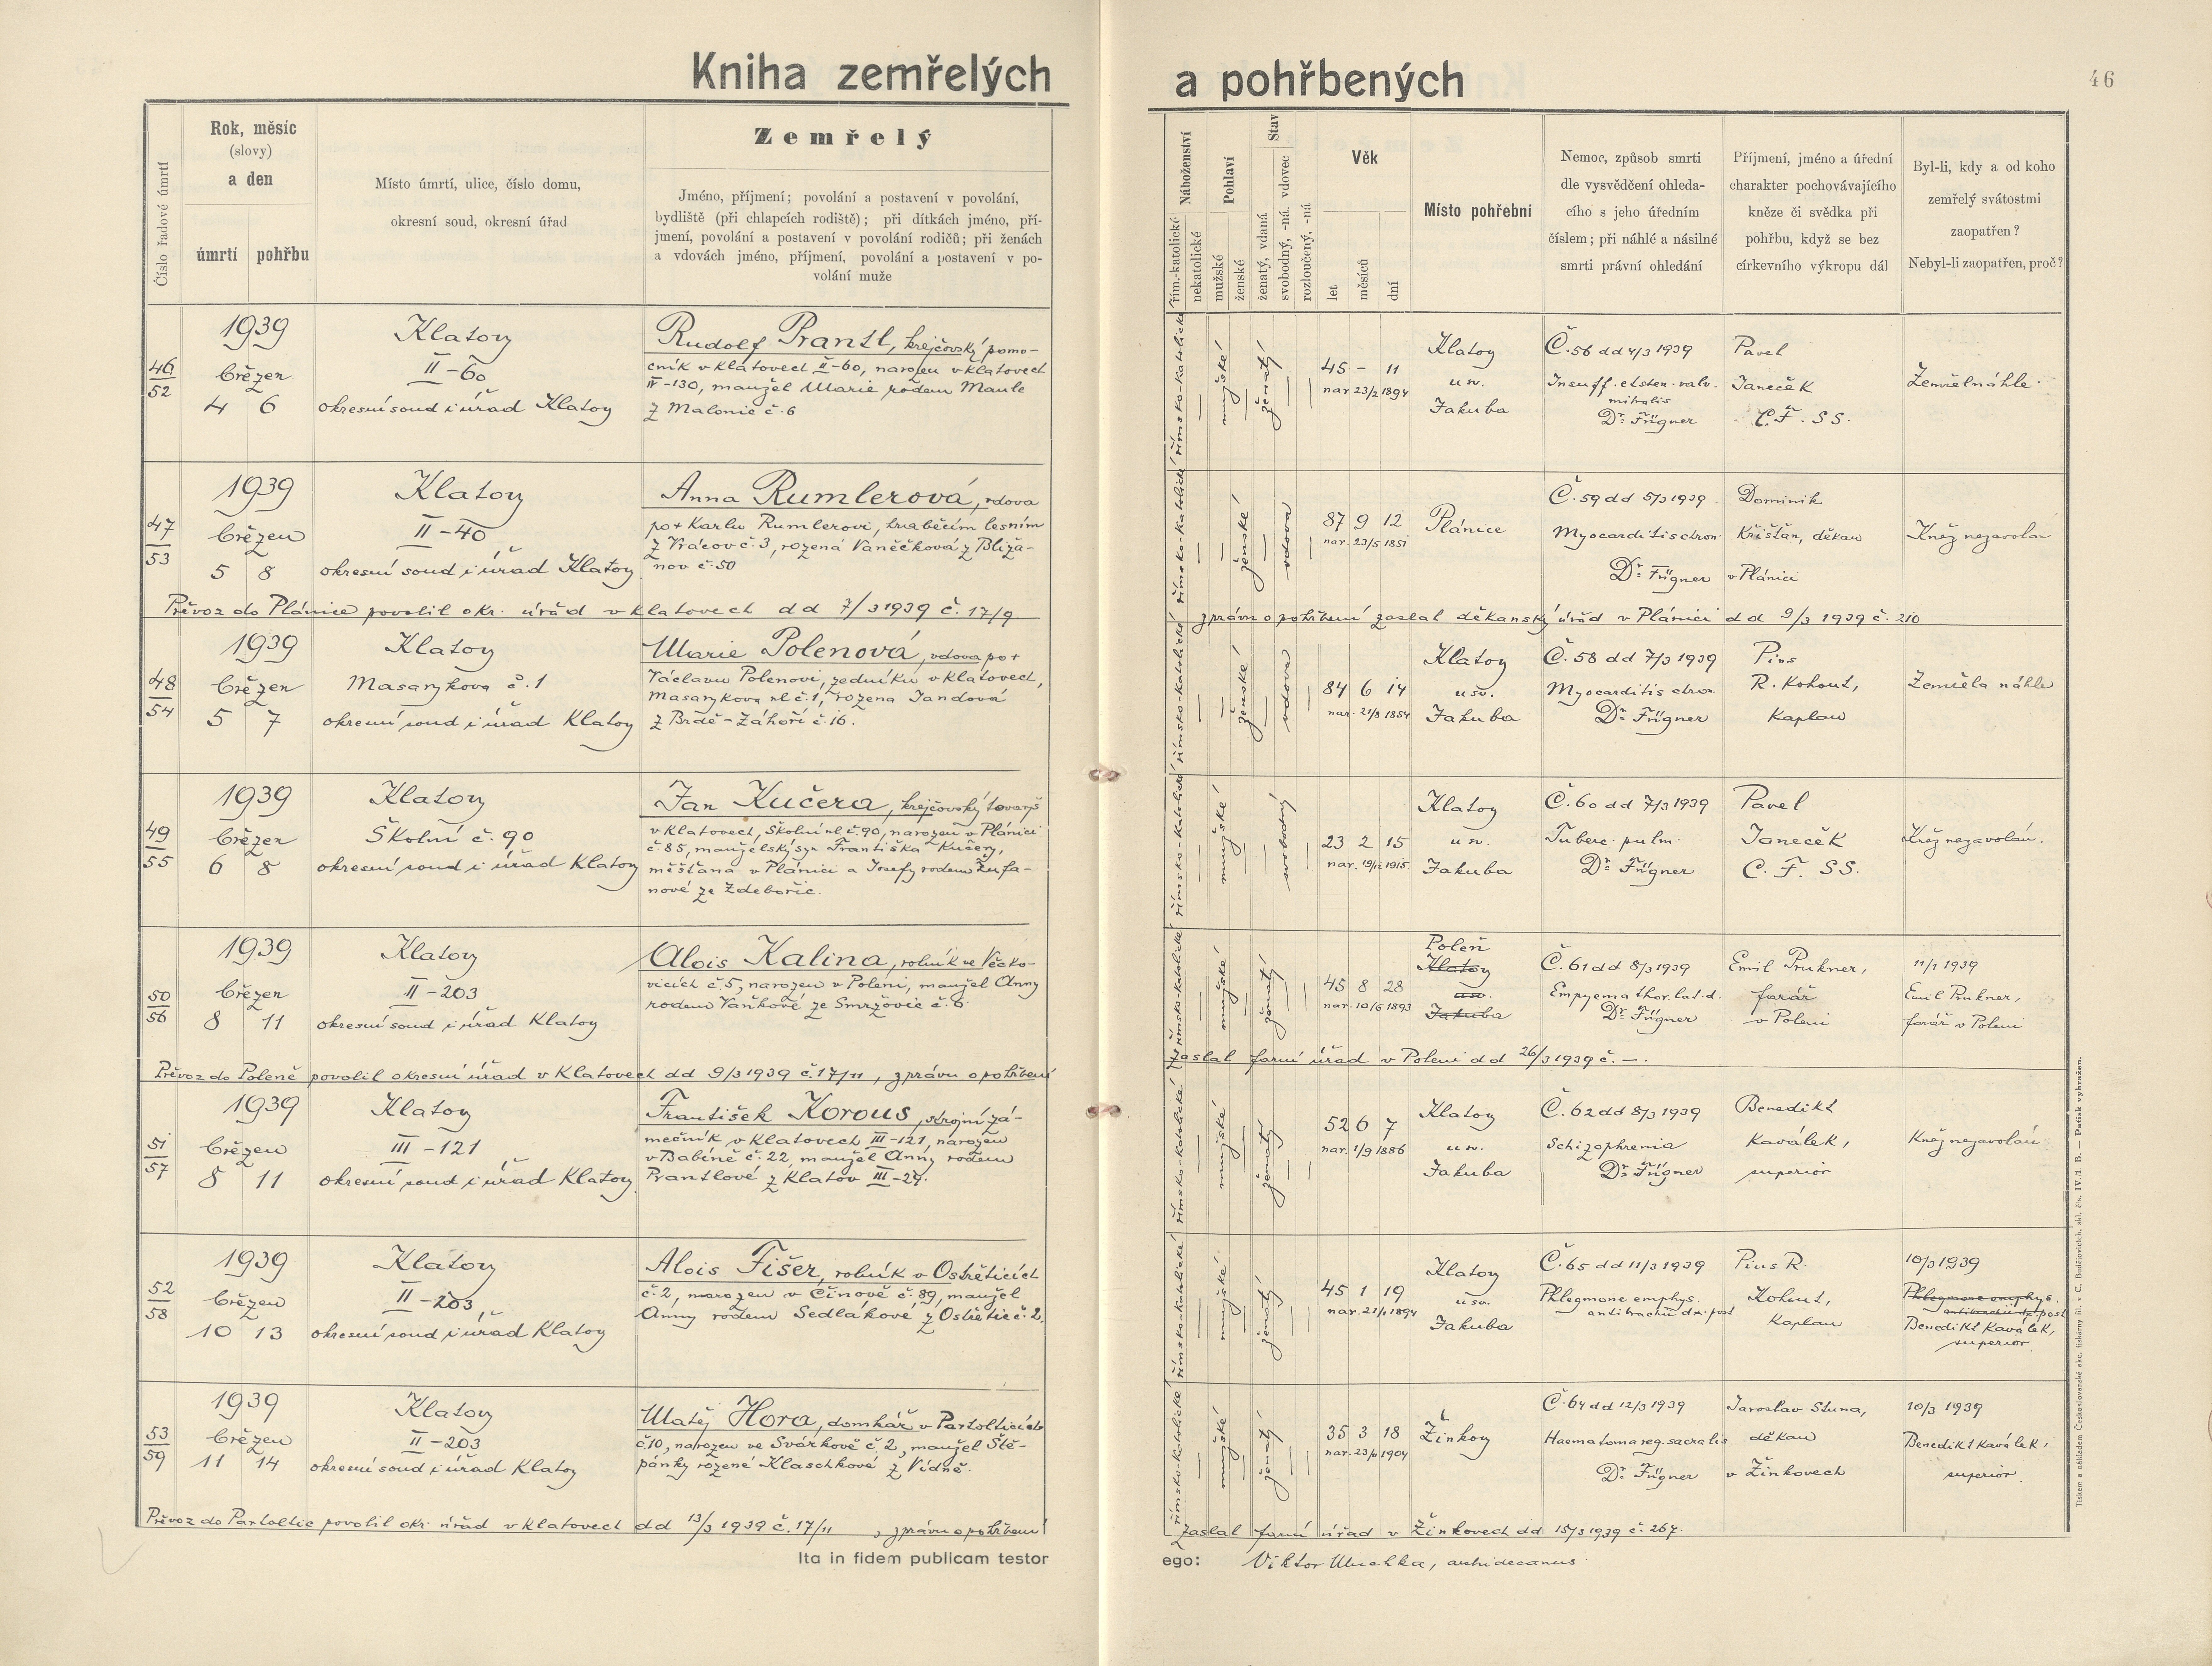 Kniha zemřelých a pohřbených
46
Číslo řadové úmrtí
Rok, měsíc
(slovy)
a den
úmrtí pohřbu
Místo úmrtí, ulice, číslo domu,
okresní soud, okresní úřad
Zemřelý
Jméno, příjmení; povolání a postavení v povolání,
bydliště (při chlapcích rodiště); při dítkách jméno, pří-
jmení, povolání a postavení v povolání rodičů; při ženách
a vdovách jméno, příjmení, povolání a postavení v po-
volání muže
Náboženství
řím.-katolické
nekatolické
Pohlaví
mužské
ženské
Stav
ženatý, vdaná
svobodný, -ná. vdovec
rozloučený, -ná
Věk
let
měsíců
dní
Místo pohřební
Nemoc, způsob smrti
dle vysvědčení ohleda-
cího s jeho úředním
číslem; při náhlé a násilné
smrti právní ohledání
Příjmení, jméno a úřední
charakter pochovávajícího
kněze či svědka při
pohřbu, když se bez
církevního výkropu dál
Byl-li, kdy a od koho
zemřelý svátostmi
zaopatřen?
Nebyl-li zaopatřen, proč?
46
52
1939
březen
4 6
Klatovy
II-60
okresní soud i úřad Klatovy
Rudolf Prantl, krejčovský pomo-
cník v Klatovech II-60, narozen v Klatovech
IV-130, manžel Marie rodem Maule
z Malonic č. 6
římsko-katolické
mužské
ženatý
45 - 11
nar 23/2 1894
Klatovy
u sv.
Jakuba
Č. 56 dd 4/3 1939
Insuff. et sten. valv.
mitralis
Dr. Fügner
Pavel
Janeček
C. F. SS.
Zemřel náhle.
47
53
1939
březen
5 8
Klatovy
II-40
okresní soud i úřad Klatovy
Anna Rumlerová, vdova
po + Karlu Rumlerovi, hraběcím lesním
z Vrácov č. 3, rozená Vaněčková z Bliža-
nov č. 50
Převoz do Plánice povolil okr. úřad v Klatovech dd 7/3 1939 č. 17/9
římsko-katolické
ženské
vdova
87 9 12
nar. 23/5 1851
Plánice
Č. 59 dd 5/3 1939
Myocarditis chron.
Dr. Fügner
Dominik
Křišťan, děkan
v Plánici
Kněz nezavolán
zprávu o pohřbení zaslal děkanský úřad v Plánici dd 9/3 1939 č. 210
48
54
1939
březen
5 7
Klatovy
Masarykova č. 1
okresní soud i úřad Klatovy
Marie Polenová, vdova po +
Václavu Polenovi, zedníku v Klatovech,
Masarykova ul. č. 1, rozená Jandová
z Brdě-Záhoří č. 16.
římsko-katolické
ženské
vdova
84 6 14
nar. 21/8 1854
Klatovy
u sv.
Jakuba
Č. 58 dd 7/3 1939
Myocarditis chron.
Dr. Fügner
Pius
R. Kohout,
kaplan
Zemřela náhle
49
55
1939
březen
6 8
Klatovy
Školní č. 90
okresní soud i úřad Klatovy
Jan Kučera, krejčovský tovaryš
v Klatovech, Školní ul. č. 90, narozen v Plánici
č. 85, manželský syn Františka Kučery,
měšťana v Plánici a Josefy rodem Žufa-
nové ze Zdebořic.
římsko-katolické
mužské
svobodný
23 2 15
nar. 19/12 1915
Klatovy
u sv.
Jakuba
Č. 60 dd 7/3 1939
Tuberc. pulm.
Dr. Fügner
Pavel
Janeček
C. F. SS.
Kněz nezavolán.
50
56
1939
březen
8 11
Klatovy
II-203
okresní soud i úřad Klatovy
Alois Kalina, rolník ve Věcko-
vicích č. 5, narozen v Poleni, manžel Anny
rodem Vaňkové ze Smržovic č. 6
Převoz do Poleně povolil okresní úřad v Klatovech dd 9/3 1939 č. 17/11, zprávu o pohřbení
římsko-katolické
mužské
ženatý
45 8 28
nar. 10/6 1893
Poleň
Klatovy
u sv.
Jakuba
Č. 61 dd 8/3 1939
Empyema thor. lat. d.
Dr. Fügner
Emil Prukner,
farář
v Poleni
11/1 1939
Emil Prukner,
farář v Poleni
zaslal farní úřad v Poleni dd 26/3 1939 č. —.
51
57
1939
březen
8 11
Klatovy
III-121
okresní soud i úřad Klatovy
František Korous, strojní zá-
mečník v Klatovech III-121, narozen
v Babíně č. 22, manžel Anny rodem
Prantlové z Klatov III-29.
římsko-katolické
mužské
ženatý
52 6 7
nar. 1/9 1886
Klatovy
u sv.
Jakuba
Č. 62 dd 8/3 1939
Schizophrenia
Dr. Fügner
Benedikt
Kaválek,
superior
Kněz nezavolán
52
58
1939
březen
10 13
Klatovy
II-203
okresní soud i úřad Klatovy
Alois Fišer, rolník v Ostřeticích
č. 2, narozen v Činově č. 89, manžel
Anny rodem Sedlákové z Ostřetic č. 2.
římsko-katolické
mužské
ženatý
45 1 19
nar. 21/1 1894
Klatovy
u sv.
Jakuba
Č. 65 dd 11/3 1939
Phlegmone emphys.
antibrachii dx. post
Pius R.
Kohout,
kaplan
10/3 1939
Phlegmone emphys.
antibrachii dx. post
Benedikt Kaválek,
superior.
53
59
1939
březen
11 14
Klatovy
II-203
okresní soud i úřad Klatovy
Matěj Hora, domkář v Partolticích
č. 10, narozen ve Svárkově č. 2, manžel Ště-
pánky rozené Klaschkové z Vídně.
Převoz do Partoltic povolil okr. úřad v Klatovech dd 13/3 1939 č. 17/11, zprávu o pohřbení
římsko-katolické
mužské
ženatý
35 3 18
Žinkovy
Č. 64 dd 12/3 1939
Haematoma reg. sacralis
Dr. Fügner
Jaroslav Stuna,
děkan
v Žinkovech
10/3 1939
Benedikt Kaválek,
superior.
zaslal farní úřad v Žinkovech dd 15/3 1939 č. 267.
Ita in fidem publicam testor ego: Viktor archidecanus
Tiskem a nákladem Českoslovanské akc. tiskárny fil. v C. Budějovicích, skl. čís. IV./1. B. — Patisk vyhražen.